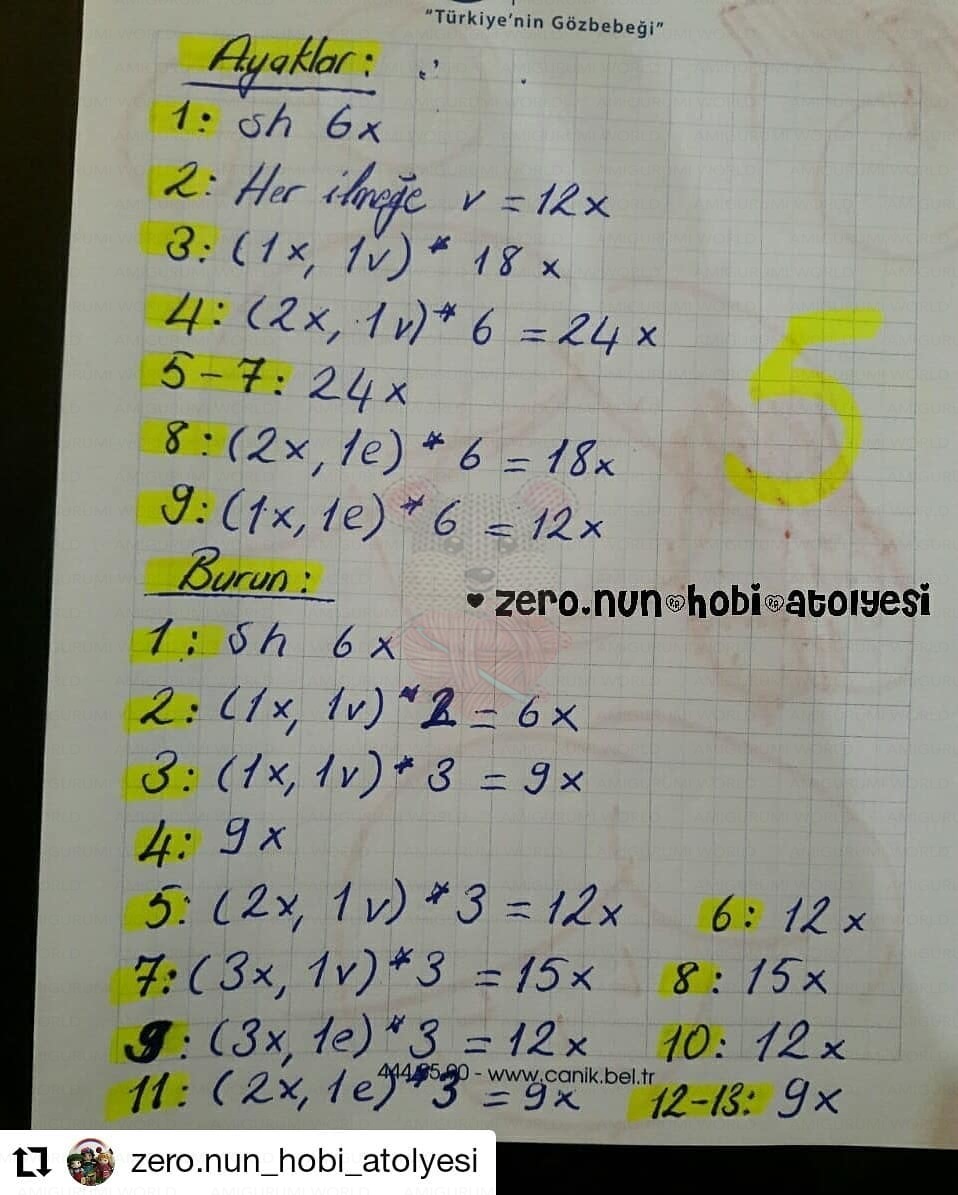 "Türkiye'nin Gözbebeği"
Ayaklar:
1: sh 6x
2: Her ilmeğe v = 12x
3: (1x, 1v) * 18 x
4: (2x, 1v) * 6 = 24 x
5-7: 24x
8: (2x, 1e) * 6 = 18x
9: (1x, 1e) * 6 = 12x
5
Burun:
♥ zero.nun hobi atolyesi
1: sh 6 x
2: (1x, 1v) * 2 = 6x
3: (1x, 1v) * 3 = 9x
4: 9x
5: (2x, 1v) * 3 = 12x 6: 12 x
7: (3x, 1v) * 3 = 15x 8: 15x
9: (3x, 1e) * 3 = 12x 10: 12x
- www.canik.bel.tr
11: (2x, 1e) * 3 = 9x 12-13: 9x
zero.nun_hobi_atolyesi